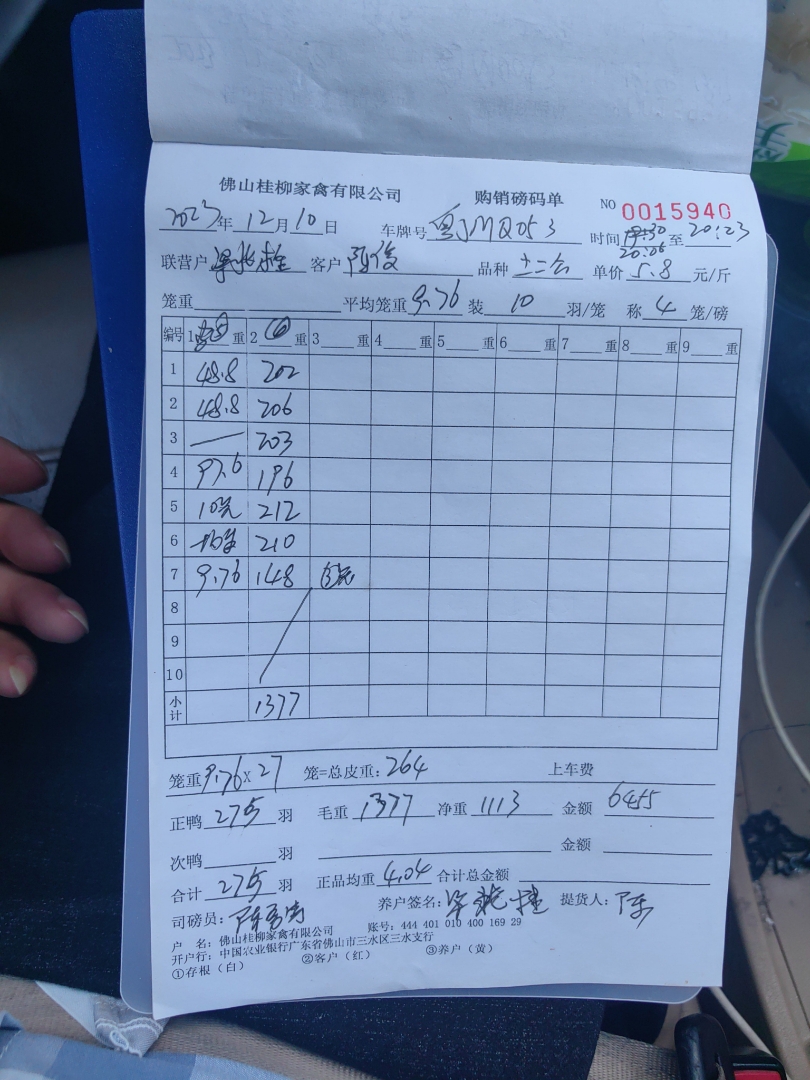 佛山桂柳家禽有限公司 购销磅码单 NO 0015940
2023年12月10日 车牌号 粤JMQ053 时间 19:30 20:06 至 20:23
联营户 客户 品种 单价 5.8 元/斤
笼重 平均笼重 9.76 装 10 羽/笼 称 4 笼/磅
编号 1 重 2 重 3 重 4 重 5 重 6 重 7 重 8 重 9 重
1 48.8 202
2 48.8 206
3 — 203
4 97.6 196
5 10笼 212
6 均重 210
7 9.76 148
8
9
10
小计 1377
笼重 9.76 x 27 笼=总皮重: 264 上车费
正鸭 275 羽 毛重 1377 净重 1113 金额 6455
次鸭 羽 金额
合计 275 羽 正品均重 4.04 合计总金额
司磅员: 养户签名: 提货人: 陈
户 名: 佛山桂柳家禽有限公司 账号: 444 401 010 400 169 29
开户行: 中国农业银行广东省佛山市三水区三水支行
①存根（白） ②客户（红） ③养户（黄）